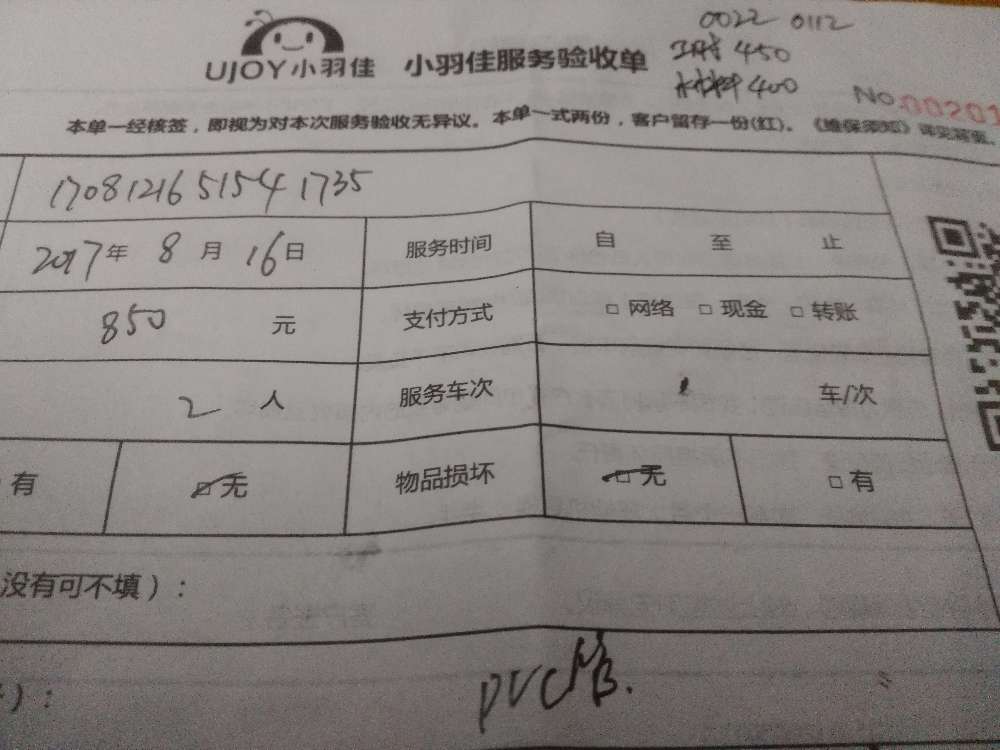 0022 0112
工时450
材料400
UJOY小羽佳 小羽佳服务验收单
No.00201
本单一经核签，即视为对本次服务验收无异议。本单一式两份，客户留存一份(红)。《维保须知》详见背面。
17081216515441735
2017年 8月 16日 服务时间 自 至 止
850 元 支付方式 □网络 □现金 □转账
2 人 服务车次 1 车/次
有 □无 物品损坏 □无 □有
没有可不填）：
）：
PVC